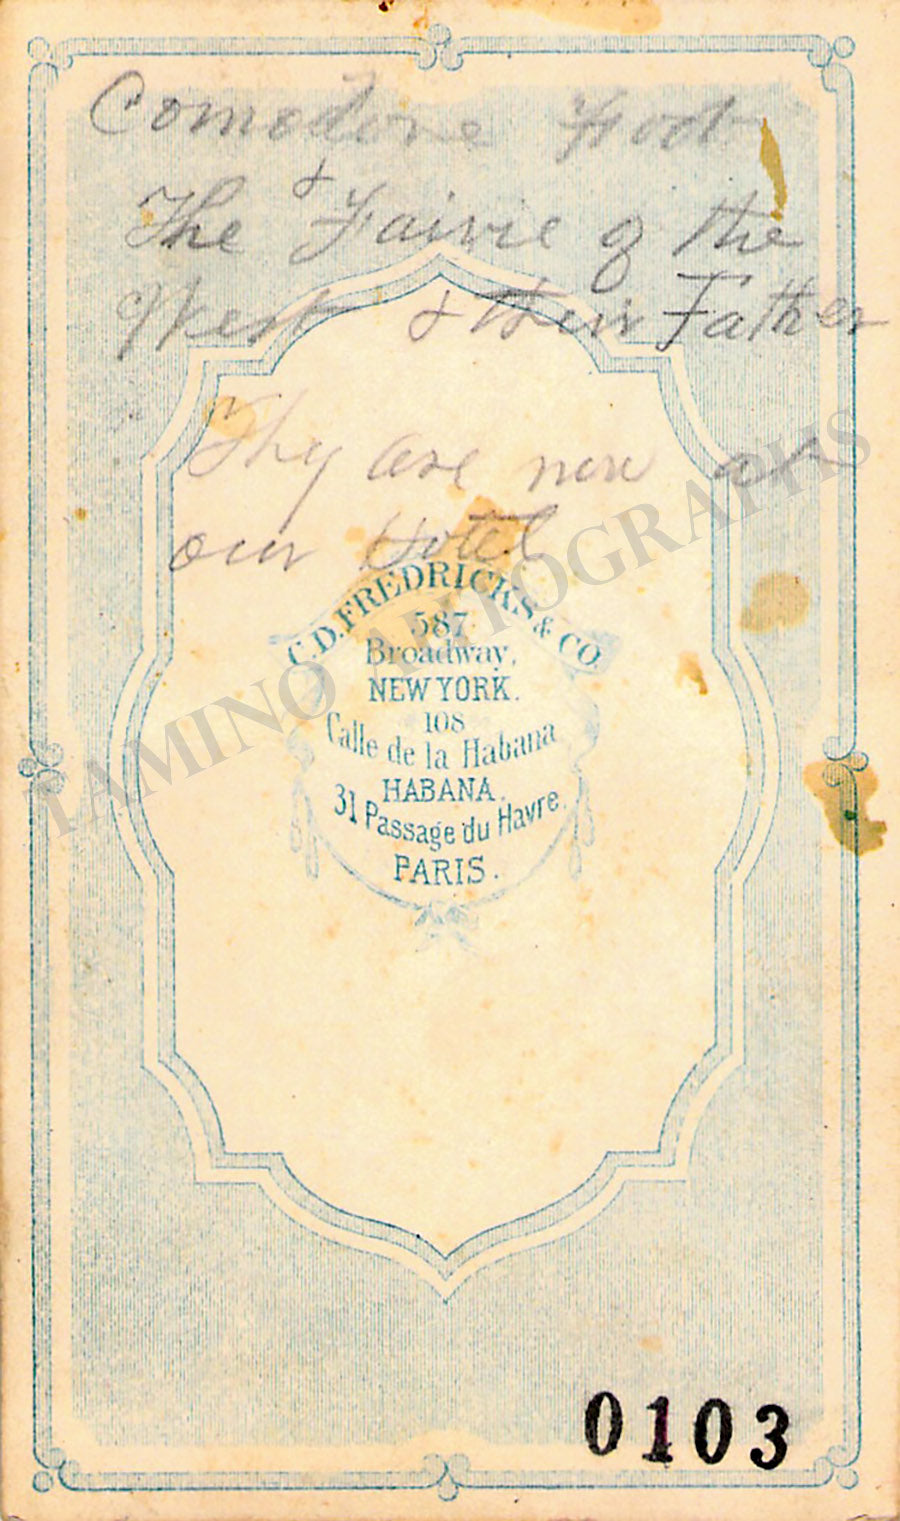 Comodore Foot
&
The Fairie of the
West & their Father
Thy are now at
our Hotel
C.D. FREDRICKS & CO.
587
Broadway,
NEW YORK.
108
Calle de la Habana
HABANA.
31 Passage du Havre.
PARIS.
TAMINO AUTOGRAPHS
0103